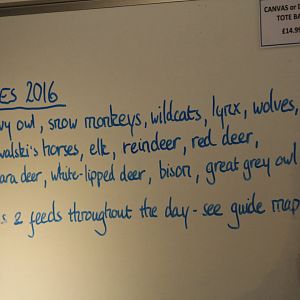 CANVAS or
TOTE BA
£14.99
ES 2016
wy owl, snow monkeys, wildcats, lynx, wolves,
walski's horses, elk, reindeer, red deer,
ara deer, white-lipped deer, bison, great grey owl
s 2 feeds throughout the day - see guide map